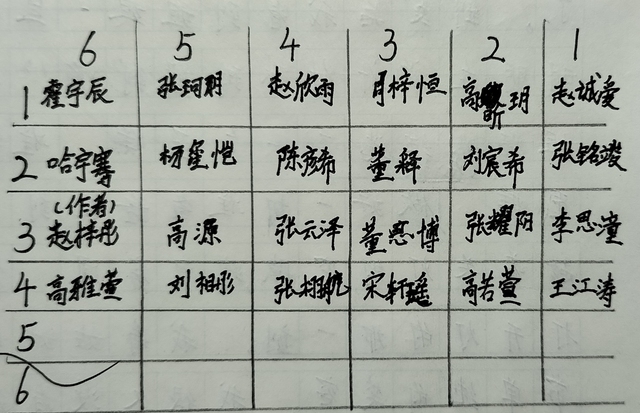 6 5 4 3 2 1
1 霍宇辰 张珂玥 赵欣雨 月梓恒 高昕玥 赵诚爱
2 哈宇骞 杨玺恺 陈彦希 董释 刘宸希 张铭竣
(作者)
3 赵梓彤 高源 张云泽 董思博 张耀阳 李思潼
4 高雅萱 刘相彤 张栩航 宋轩瑶 高若萱 王江涛
5
6